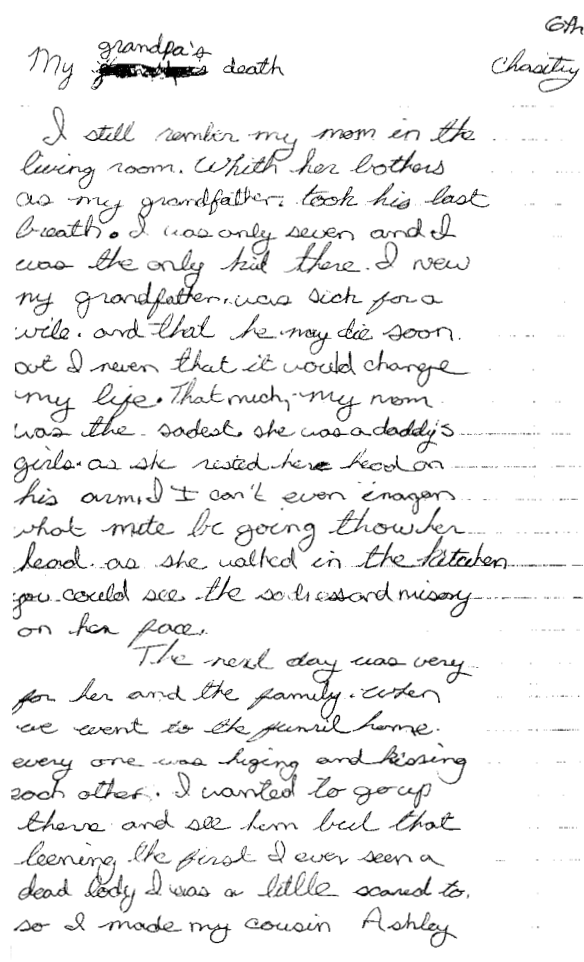 6th
grandpa's
My death Chasitty
I still rember my mom in the
living room. Whith her bothers
as my grandfather. took his last
breath. I was only seven and I
was the only kid there. I new
my grandfather. was sick for a
wile. and that he may die soon.
but I never that it would change
my life. That much, my mom
was the sadest. she was a daddy's
girls. as she rested here head on
his arm. I can't even inagen
what mite be going thow her
head. as she walked in the kitchen
you could see the sadness and misory
on her face.
The next day was very
for her and the family. when
we went to the funril home.
every one was huging and kissing
each other. I wanted to go up
there and see him but that
leening the first I ever seen a
dead body I was a little scared to.
so I made my cousin Ashley